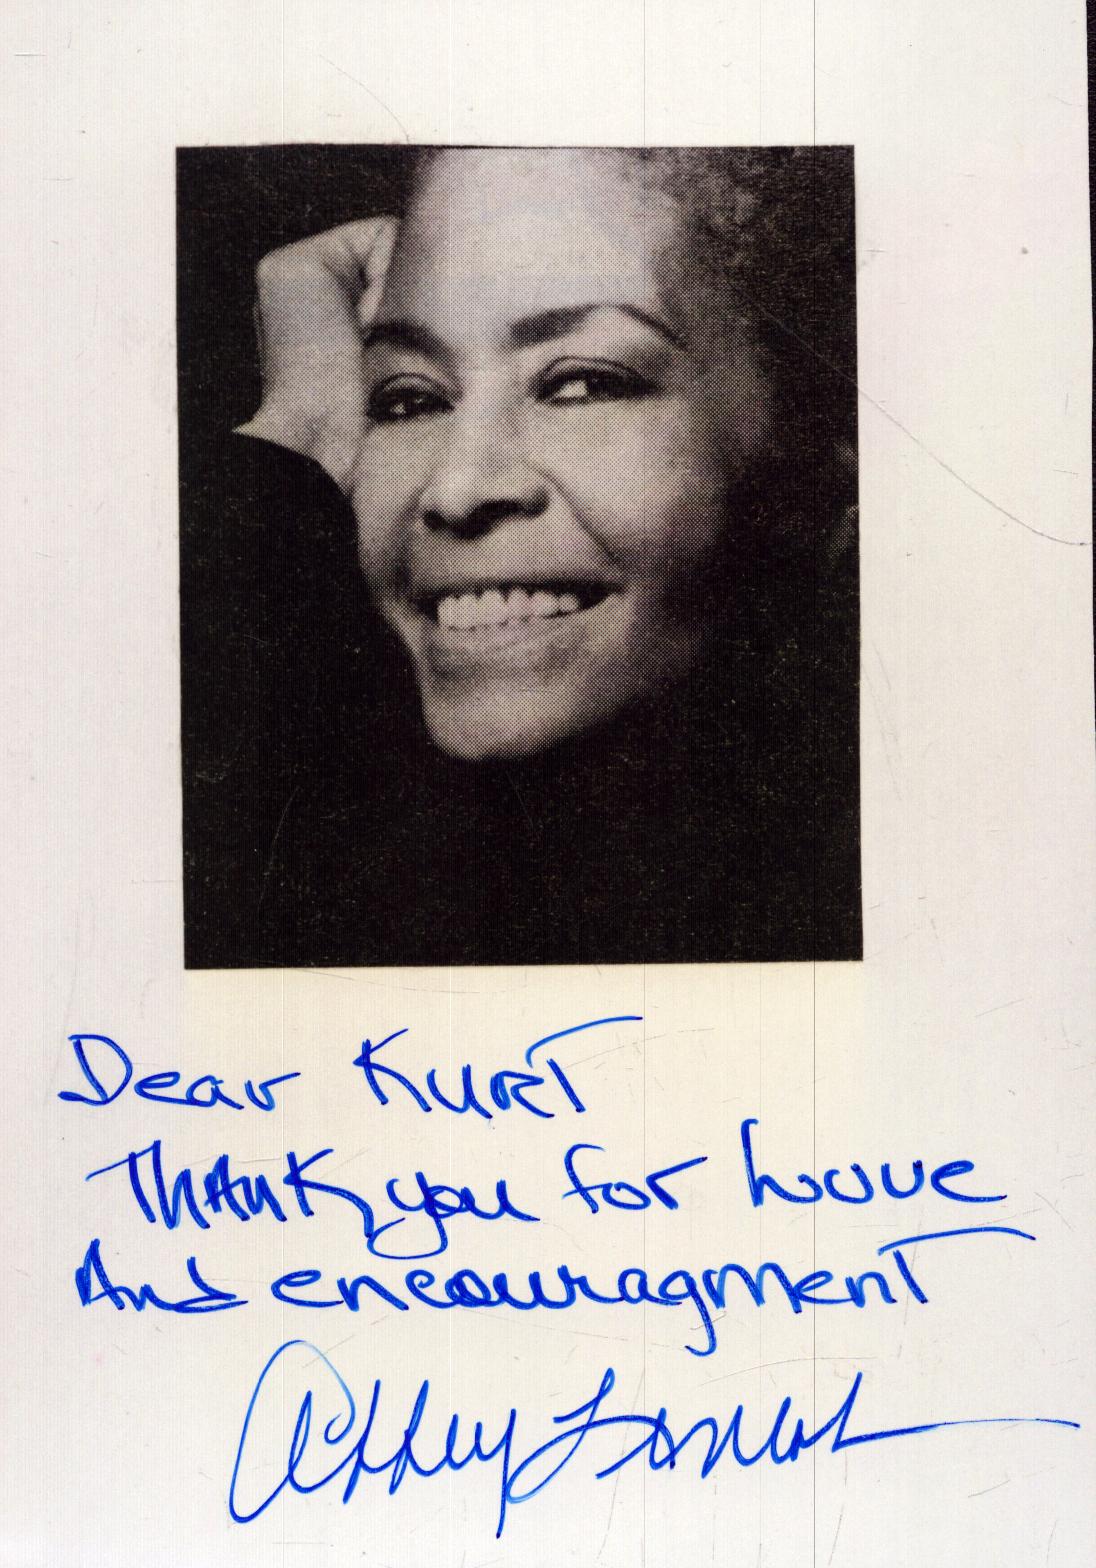 Dear Kurt
Thank you for Love
And encouragment
Abbey Lincoln